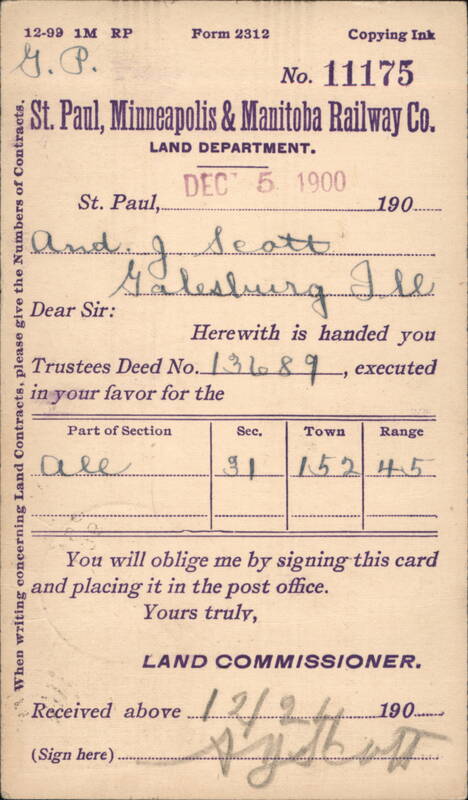 12-99 1M RP Form 2312 Copying Ink
G. P.
No. 11175
St. Paul, Minneapolis & Manitoba Railway Co.
LAND DEPARTMENT.
DEC 5 1900
St. Paul, 190
And. J Scott
Galesburg Ill
Dear Sir:
Herewith is handed you
Trustees Deed No. 13689, executed
in your favor for the
Part of Section Sec. Town Range
All 31 152 45
You will oblige me by signing this card
and placing it in the post office.
Yours truly,
LAND COMMISSIONER.
Received above 12/2 190
(Sign here) Scott
When writing concerning Land Contracts, please give the Numbers of Contracts.